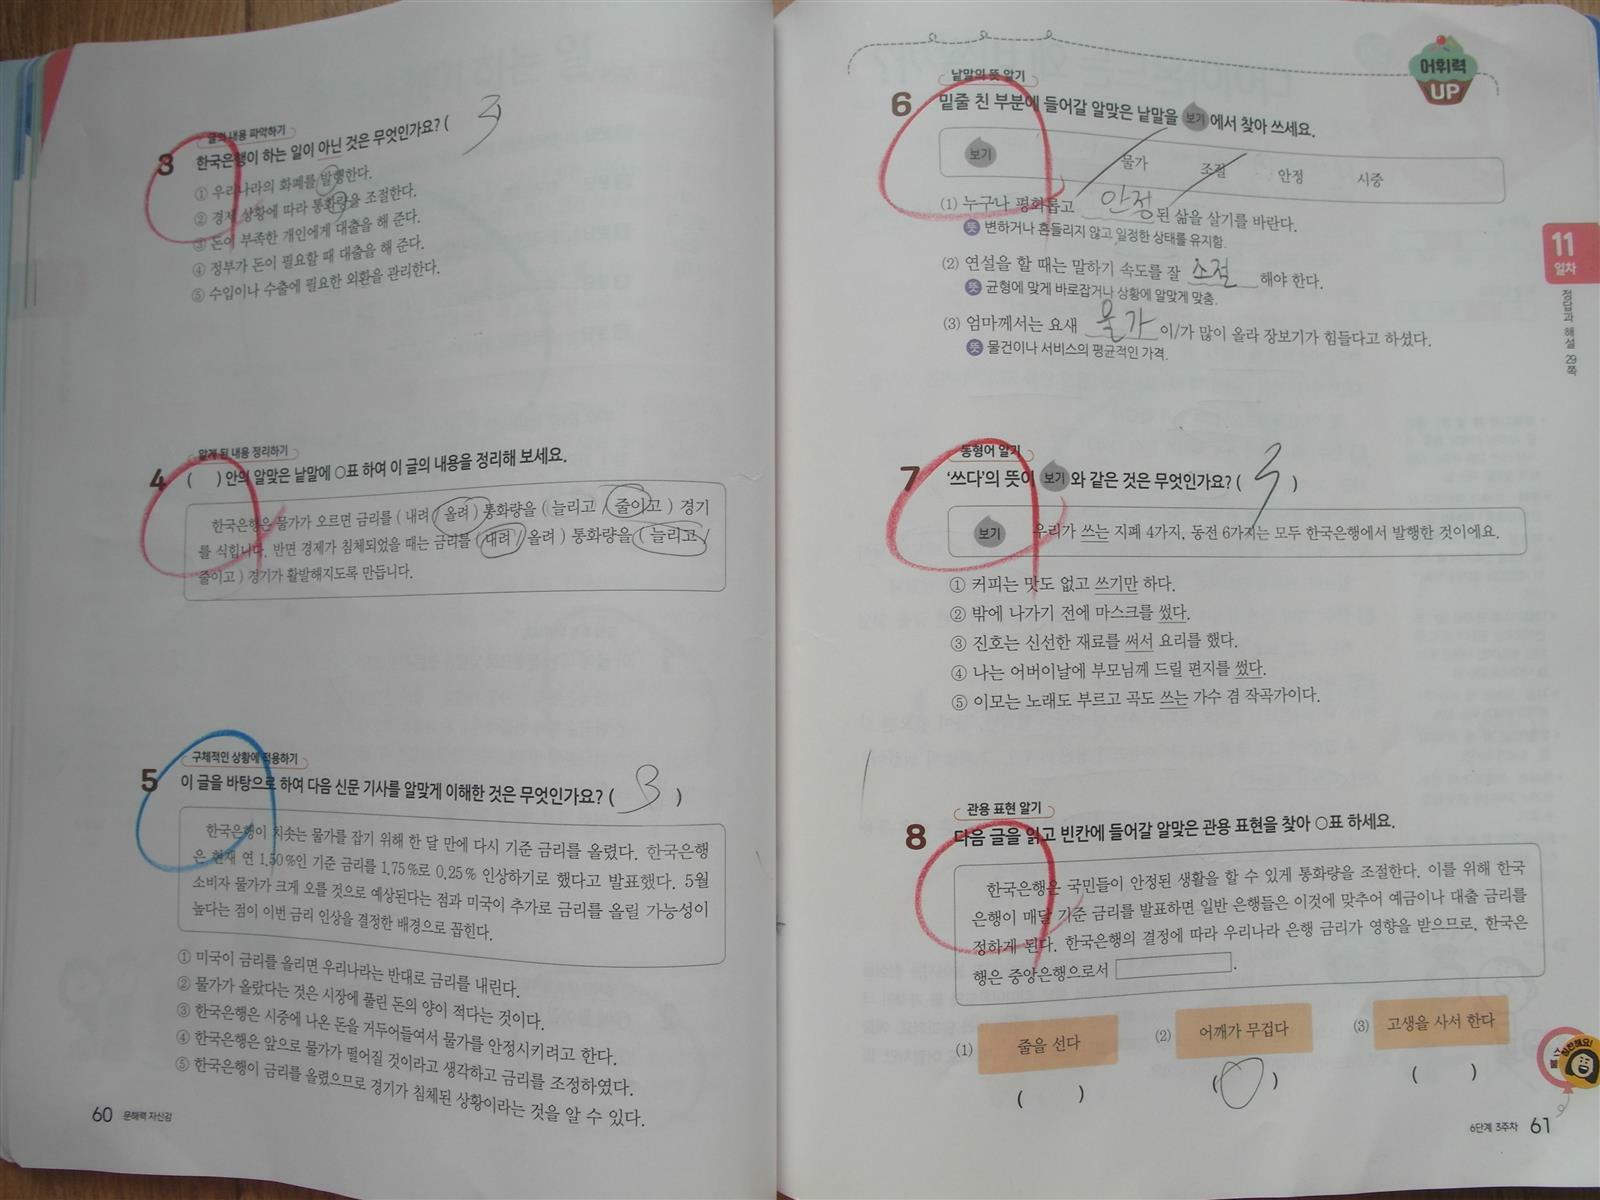 글의 내용 파악하기
3 한국은행이 하는 일이 아닌 것은 무엇인가요? ( 3
① 우리나라의 화폐를 발행한다.
② 경제 상황에 따라 통화량을 조절한다.
③ 돈이 부족한 개인에게 대출을 해 준다.
④ 정부가 돈이 필요할 때 대출을 해 준다.
⑤ 수입이나 수출에 필요한 외환을 관리한다.
알게 된 내용 정리하기
4 ( ) 안의 알맞은 낱말에 ○표 하여 이 글의 내용을 정리해 보세요.
한국은행은 물가가 오르면 금리를 ( 내려 / 올려 ) 통화량을 ( 늘리고 / 줄이고 ) 경기
를 식힙니다. 반면 경제가 침체되었을 때는 금리를 ( 내려 / 올려 ) 통화량을 ( 늘리고 /
줄이고 ) 경기가 활발해지도록 만듭니다.
구체적인 상황에 적용하기
5 이 글을 바탕으로 하여 다음 신문 기사를 알맞게 이해한 것은 무엇인가요? ( 3 )
한국은행이 치솟는 물가를 잡기 위해 한 달 만에 다시 기준 금리를 올렸다. 한국은행
은 현재 연 1.50%인 기준 금리를 1.75%로 0.25% 인상하기로 했다고 발표했다. 5월
소비자 물가가 크게 오를 것으로 예상된다는 점과 미국이 추가로 금리를 올릴 가능성이
높다는 점이 이번 금리 인상을 결정한 배경으로 꼽힌다.
① 미국이 금리를 올리면 우리나라는 반대로 금리를 내린다.
② 물가가 올랐다는 것은 시장에 풀린 돈의 양이 적다는 것이다.
③ 한국은행은 시중에 나온 돈을 거두어들여서 물가를 안정시키려고 한다.
④ 한국은행은 앞으로 물가가 떨어질 것이라고 생각하고 금리를 조정하였다.
⑤ 한국은행이 금리를 올렸으므로 경기가 침체된 상황이라는 것을 알 수 있다.
60 문해력 자신감
어휘력
UP
낱말의 뜻 알기
6 밑줄 친 부분에 들어갈 알맞은 낱말을 보기 에서 찾아 쓰세요.
보기 물가 조절 안정 시중
(1) 누구나 평화롭고 안정 된 삶을 살기를 바란다.
뜻 변하거나 흔들리지 않고 일정한 상태를 유지함.
(2) 연설을 할 때는 말하기 속도를 잘 조절 해야 한다.
뜻 균형에 맞게 바로잡거나 상황에 알맞게 맞춤.
(3) 엄마께서는 요새 물가 이/가 많이 올라 장보기가 힘들다고 하셨다.
뜻 물건이나 서비스의 평균적인 가격.
11
일차
정답과 해설 29쪽
동형어 알기
7 '쓰다'의 뜻이 보기 와 같은 것은 무엇인가요? ( 3 )
보기 우리가 쓰는 지폐 4가지, 동전 6가지는 모두 한국은행에서 발행한 것이에요.
① 커피는 맛도 없고 쓰기만 하다.
② 밖에 나가기 전에 마스크를 썼다.
③ 진호는 신선한 재료를 써서 요리를 했다.
④ 나는 어버이날에 부모님께 드릴 편지를 썼다.
⑤ 이모는 노래도 부르고 곡도 쓰는 가수 겸 작곡가이다.
관용 표현 알기
8 다음 글을 읽고 빈칸에 들어갈 알맞은 관용 표현을 찾아 ○표 하세요.
한국은행은 국민들이 안정된 생활을 할 수 있게 통화량을 조절한다. 이를 위해 한국
은행이 매달 기준 금리를 발표하면 일반 은행들은 이것에 맞추어 예금이나 대출 금리를
정하게 된다. 한국은행의 결정에 따라 우리나라 은행 금리가 영향을 받으므로, 한국은
행은 중앙은행으로서 .
(1) 줄을 선다 (2) 어깨가 무겁다 (3) 고생을 사서 한다
( ) ( ○ ) ( )
칭찬해요!
6단계 3주차 61